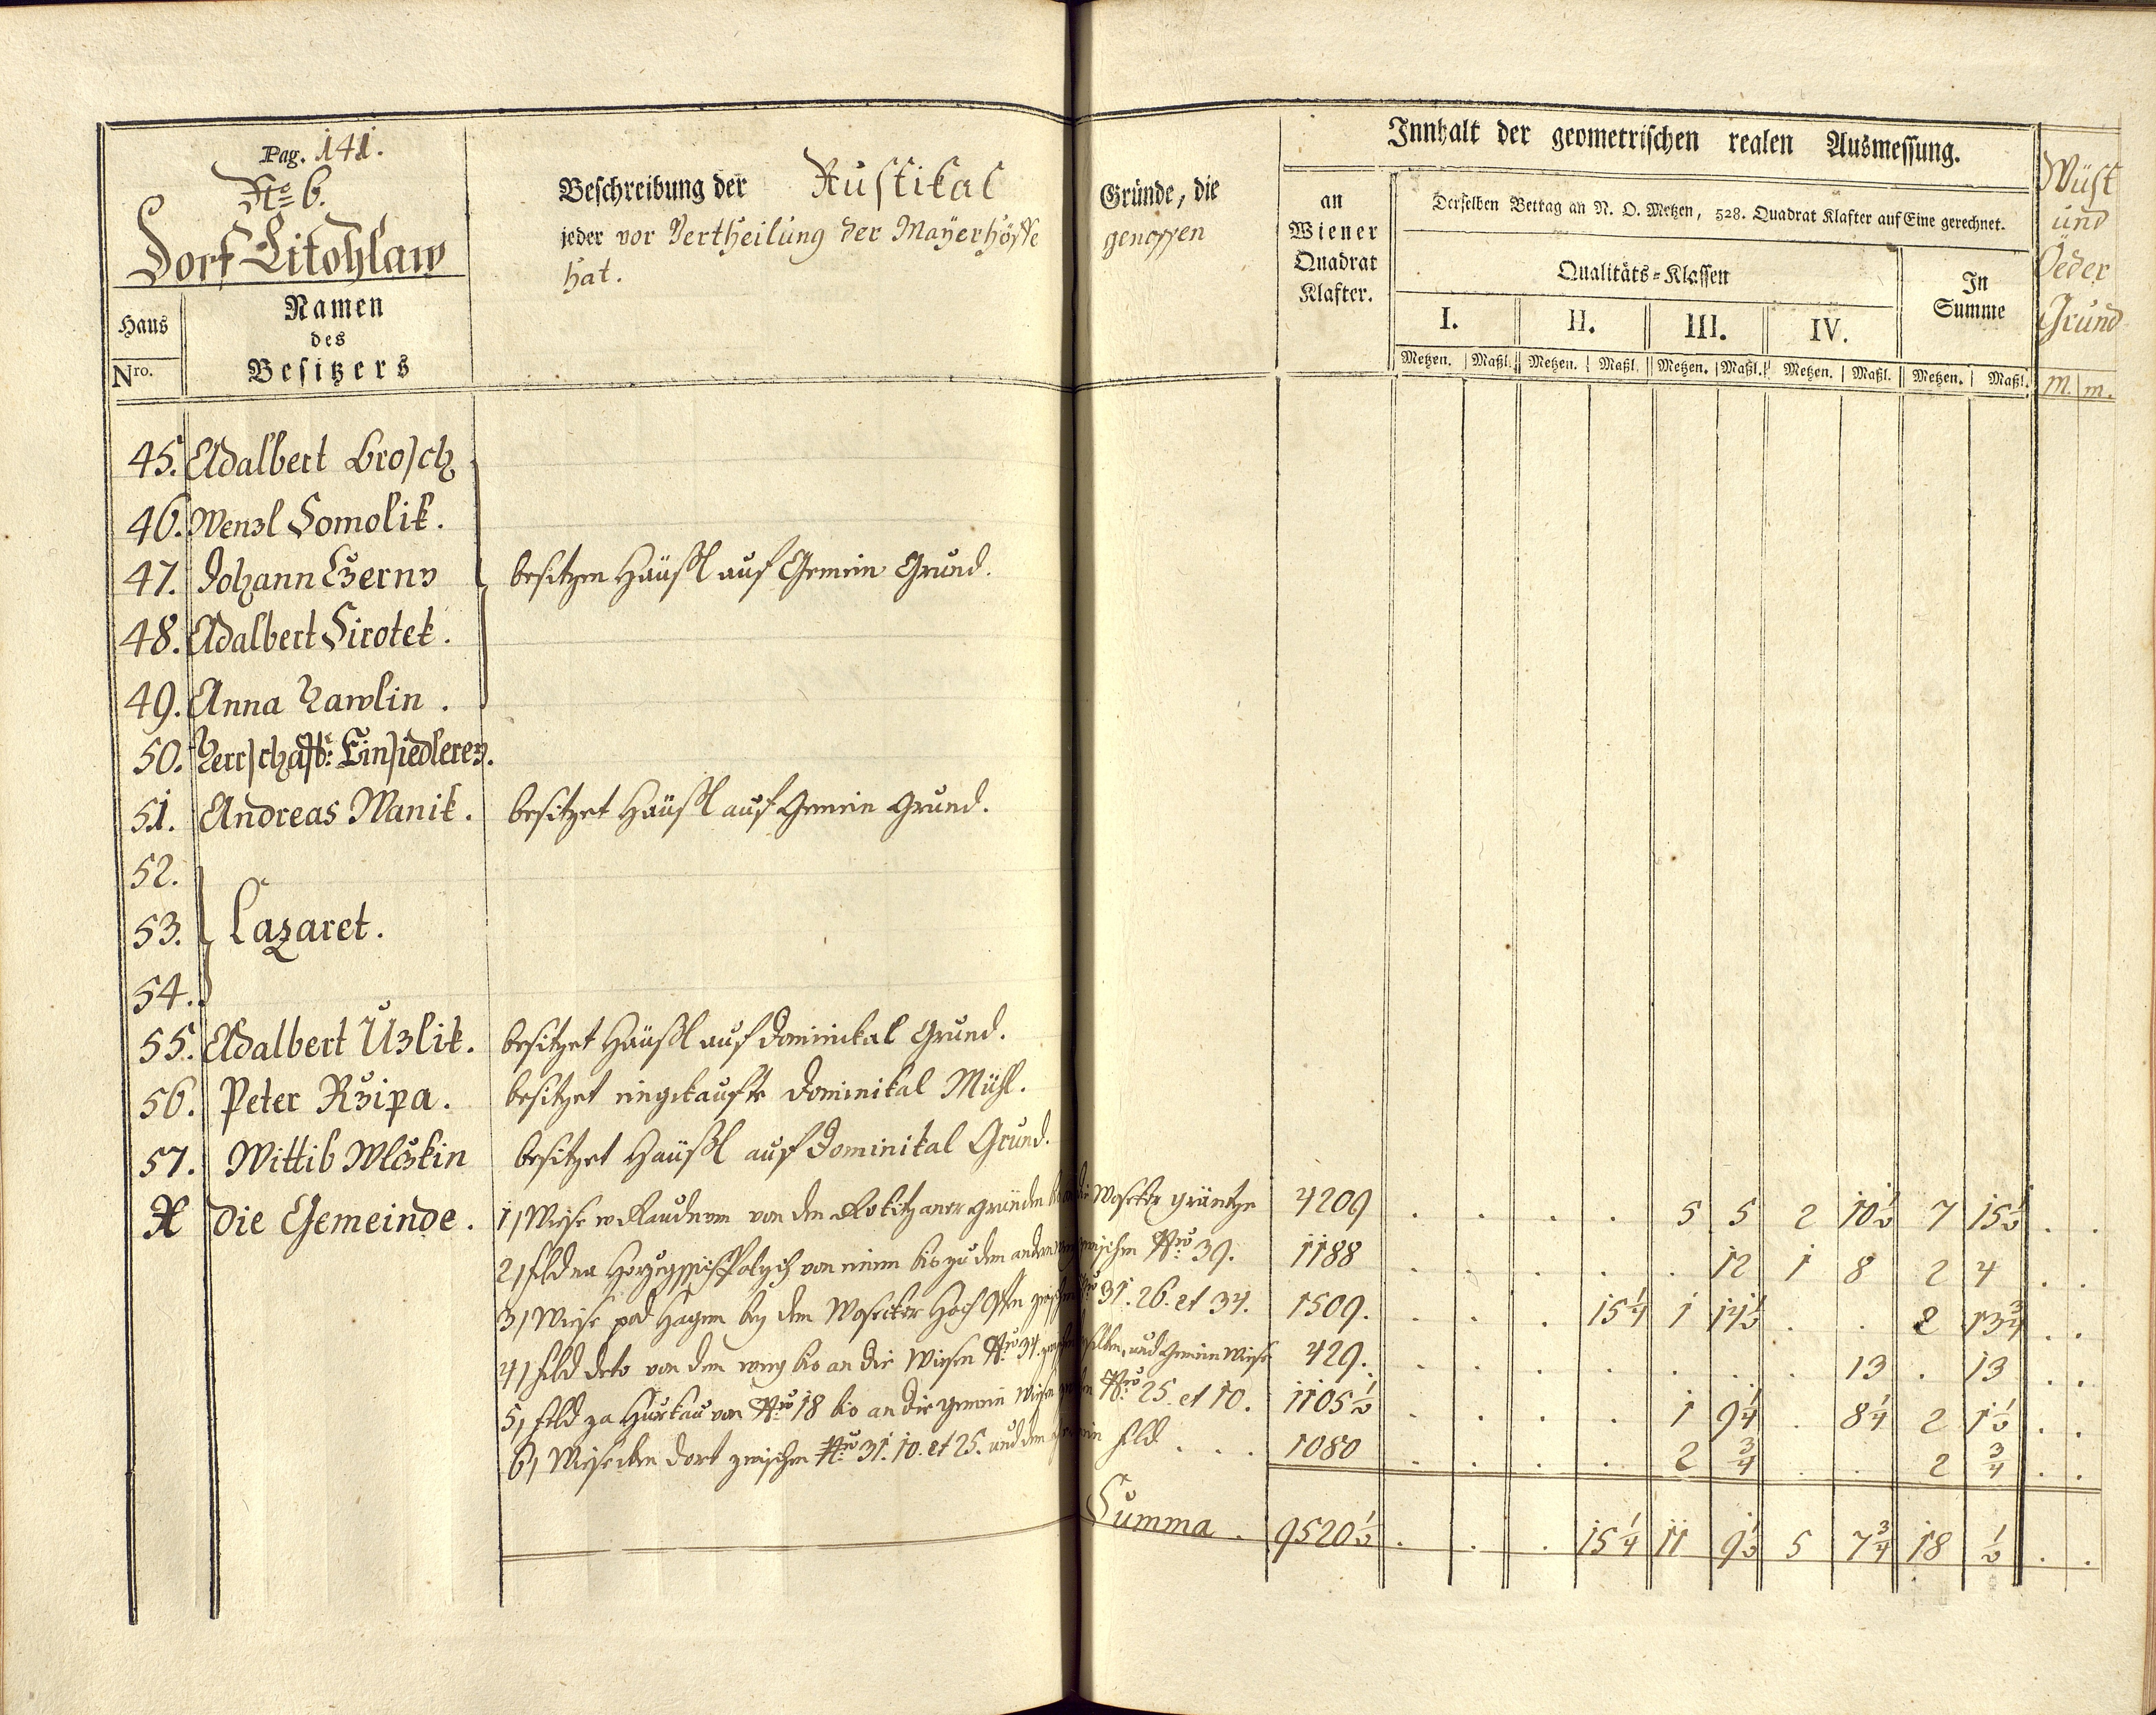 Pag. 141.
No 6.
Dorf Litohlaw
Haus
Nro.
Namen
des
Besitzers
Beschreibung der Rustikal Gründe, die
jeder vor Vertheilung der Mayerhöffe genossen
hat.
Innhalt der geometrischen realen Ausmessung.
an
Wiener
Quadrat
Klafter.
Derselben Bettag an N. O. Metzen, 528. Quadrat Klafter auf Eine gerechnet.
Qualitäts-Klassen
In
Summe
I. II. III. IV.
Metzen. Maßl. Metzen. Maßl. Metzen. Maßl. Metzen. Maßl. Metzen. Maßl.
Wüst
und
Öeder
Grund
M. m.
45. Adalbert Brosch
46. Wenzl Somolik.
47. Johann Czerny besitzen Häußl auf Gemein Grund.
48. Adalbert Sirotek.
49. Anna Hawlin.
50. Herrschaftl: Einsiedlerey.
51. Andreas Wanik. besitzet Häußl auf Gemein Grund.
52.
53. Lazaret.
54.
55. Adalbert Uzlik. besitzet Häußl auf Dominikal Grund.
56. Peter Rzipa. besitzet eingekaufte Dominikal Mühl.
57. Wittib Wlczkin besitzet Häußl auf Dominikal Grund.
X die Gemeinde. 1) Wiese von den Rokitzaner Gründen Wosseker gräntze 4209 . . . . 5 5 2 10 1/2 7 15 1/2 . .
2) Feld von einem bis zu dem andern Weg zwischen Nro 39. 1188 . . . . . 12 1 8 2 4 . .
3) Wiese pod Hagem bey dem Wosseker Hoch zwischen Nro 31. 26. et 34. 1509. . . . 15 1/4 1 14 1/2 . . 2 13 3/4 . .
4) Feld deto von dem weeg bis an die Wiesen Nro 34. und Gemein Wiese 429. . . . . . . . 13 . 13 . .
5) Feld za Hurkau von Nro 18 bis an die gemein Wiesen Nro 25. et 10. 1105 1/2 . . . . 1 9 1/4 . 8 1/4 2 1 1/2 . .
6) Wiesecken dort zwischen Nro 31. 10. et 25. und dem Gemein Feld . . . 1080 . . . . 2 3/4 . . 2 3/4 . .
Summa . 9520 1/2 . . . 15 1/4 11 9 1/2 5 7 3/4 18 1/2 . .